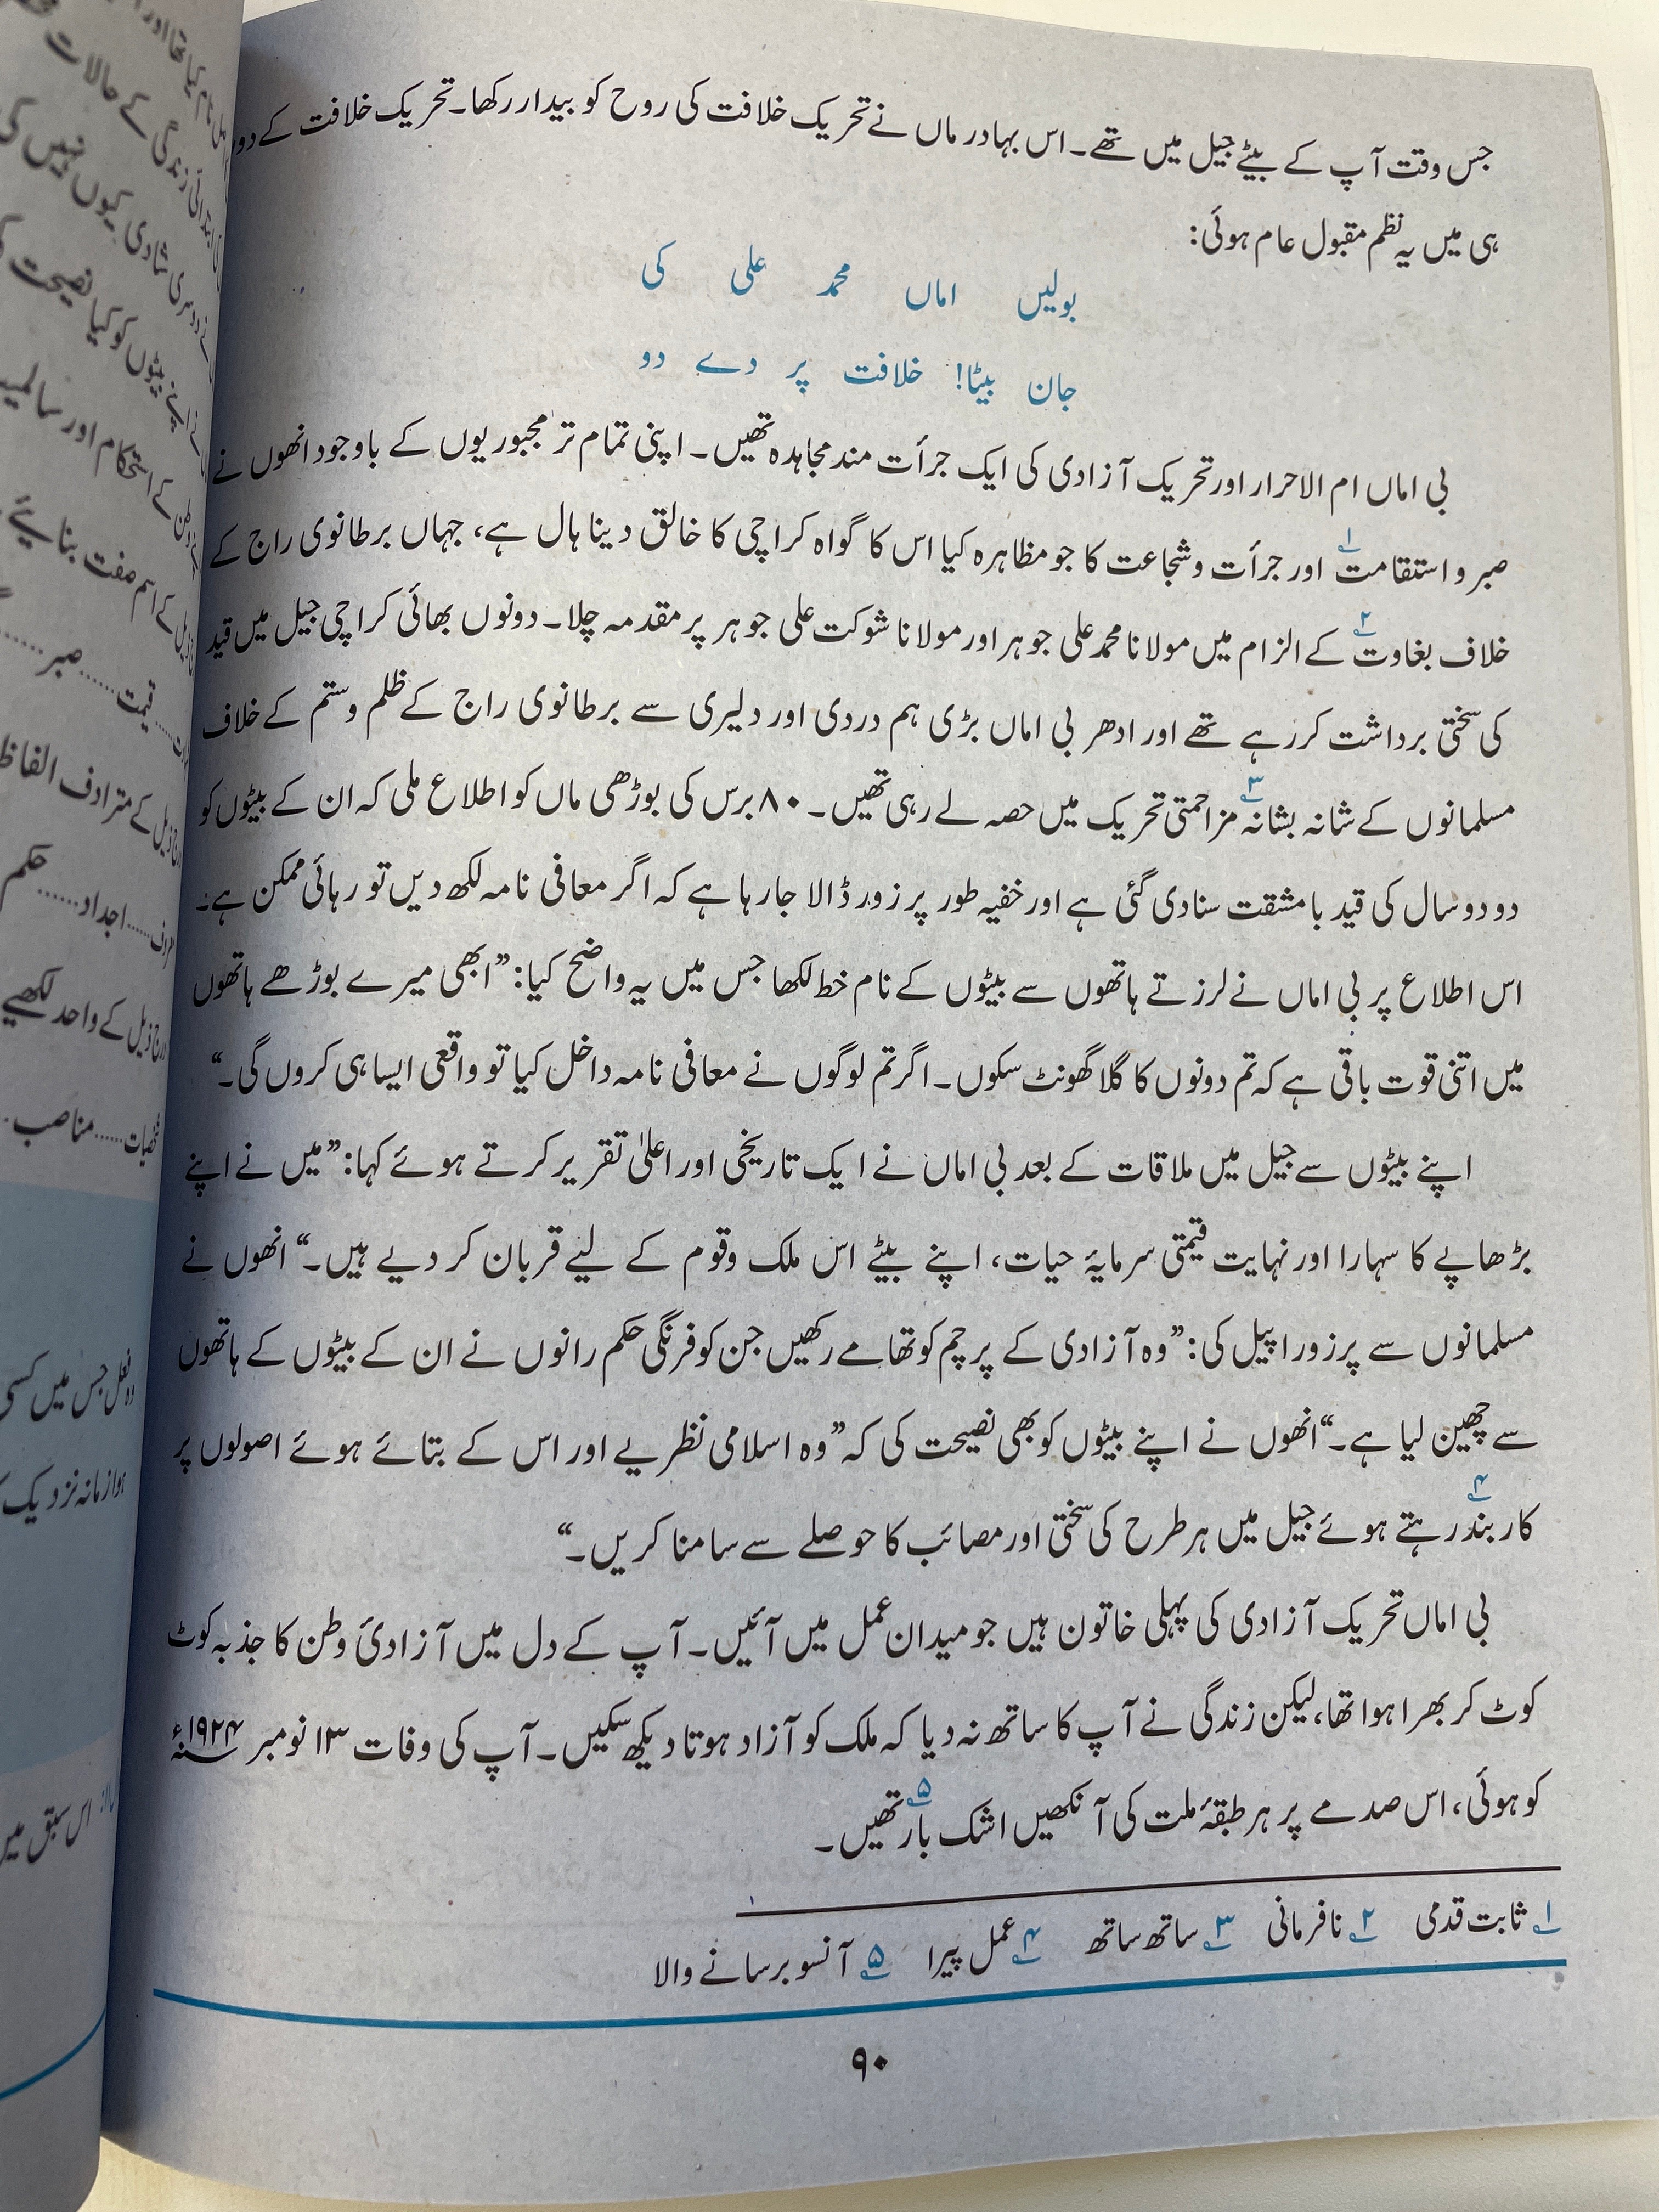 جس وقت آپ کے بیٹے جیل میں تھے۔ اس بہادر ماں نے تحریک خلافت کی روح کو بیدار رکھا۔ تحریک خلافت کے دور
ہی میں یہ نظم مقبول عام ہوئی:
بولیں اماں محمد علی کی
جان بیٹا! خلافت پر دے دو
بی اماں ام الاحرار اور تحریک آزادی کی ایک جرأت مند مجاہدہ تھیں۔ اپنی تمام تر مجبوریوں کے باوجود انھوں نے
صبر و استقامت۱ اور جرأت و شجاعت کا جو مظاہرہ کیا اس کا گواہ کراچی کا خالق دینا ہال ہے، جہاں برطانوی راج کے
خلاف بغاوت۲ کے الزام میں مولانا محمد علی جوہر اور مولانا شوکت علی جوہر پر مقدمہ چلا۔ دونوں بھائی کراچی جیل میں قید
کی سختی برداشت کر رہے تھے اور ادھر بی اماں بڑی ہم دردی اور دلیری سے برطانوی راج کے ظلم و ستم کے خلاف
مسلمانوں کے شانہ بشانہ۳ مزاحمتی تحریک میں حصہ لے رہی تھیں۔ ۸۰ برس کی بوڑھی ماں کو اطلاع ملی کہ ان کے بیٹوں کو
دو دو سال کی قید با مشقت سنا دی گئی ہے اور خفیہ طور پر زور ڈالا جا رہا ہے کہ اگر معافی نامہ لکھ دیں تو رہائی ممکن ہے۔
اس اطلاع پر بی اماں نے لرزتے ہاتھوں سے بیٹوں کے نام خط لکھا جس میں یہ واضح کیا: ”ابھی میرے بوڑھے ہاتھوں
میں اتنی قوت باقی ہے کہ تم دونوں کا گلا گھونٹ سکوں۔ اگر تم لوگوں نے معافی نامہ داخل کیا تو واقعی ایسا ہی کروں گی۔“
اپنے بیٹوں سے جیل میں ملاقات کے بعد بی اماں نے ایک تاریخی اور اعلیٰ تقریر کرتے ہوئے کہا: ”میں نے اپنے
بڑھاپے کا سہارا اور نہایت قیمتی سرمایۂ حیات، اپنے بیٹے اس ملک و قوم کے لیے قربان کر دیے ہیں۔“ انھوں نے
مسلمانوں سے پرزور اپیل کی: ”وہ آزادی کے پرچم کو تھامے رکھیں جن کو فرنگی حکم رانوں نے ان کے بیٹوں کے ہاتھوں
سے چھین لیا ہے۔“ انھوں نے اپنے بیٹوں کو بھی نصیحت کی کہ ”وہ اسلامی نظریے اور اس کے بتائے ہوئے اصولوں پر
کاربند۴ رہتے ہوئے جیل میں ہر طرح کی سختی اور مصائب کا حوصلے سے سامنا کریں۔“
بی اماں تحریک آزادی کی پہلی خاتون ہیں جو میدان عمل میں آئیں۔ آپ کے دل میں آزادیٔ وطن کا جذبہ کوٹ
کوٹ کر بھرا ہوا تھا، لیکن زندگی نے آپ کا ساتھ نہ دیا کہ ملک کو آزاد ہوتا دیکھ سکیں۔ آپ کی وفات ۱۳ نومبر ۱۹۲۴ء
کو ہوئی، اس صدمے پر ہر طبقۂ ملت کی آنکھیں اشک بار۵ تھیں۔
۱ ثابت قدمی ۲ نافرمانی ۳ ساتھ ساتھ ۴ عمل پیرا ۵ آنسو برسانے والا
۹۰
زندگی کے حالات
دوسری شادی کیوں نہیں کی
اپنے بیٹوں کو کیا نصیحت
کے استحکام اور سالمیت
کے اسم صفت بنائیے
قیمت...... صبر......
کے مترادف الفاظ
اجداد...... حکم
کے واحد لکھیے
شخصیات...... مناصب
فعل جس میں کسی
زمانہ نزدیک
اس سبق میں